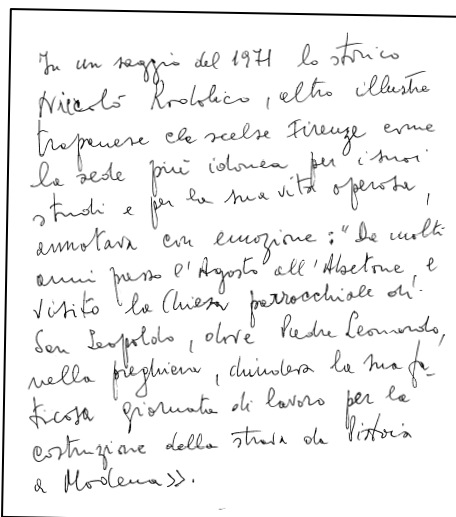 In un saggio del 1971 lo storico
Niccolò Rodolico, altro illustre
trapanese che scelse Firenze come
la sede più idonea per i suoi
studi e per la sua vita operosa,
annotava con emozione: "Da molti
anni passo l'Agosto all'Abetone, e
visito la Chiesa parrocchiale di
San Leopoldo, dove Padre Leonardo,
nella preghiera, chiudeva la sua fa-
ticosa giornata di lavoro per la
costruzione della strada da Pistoia
a Modena».